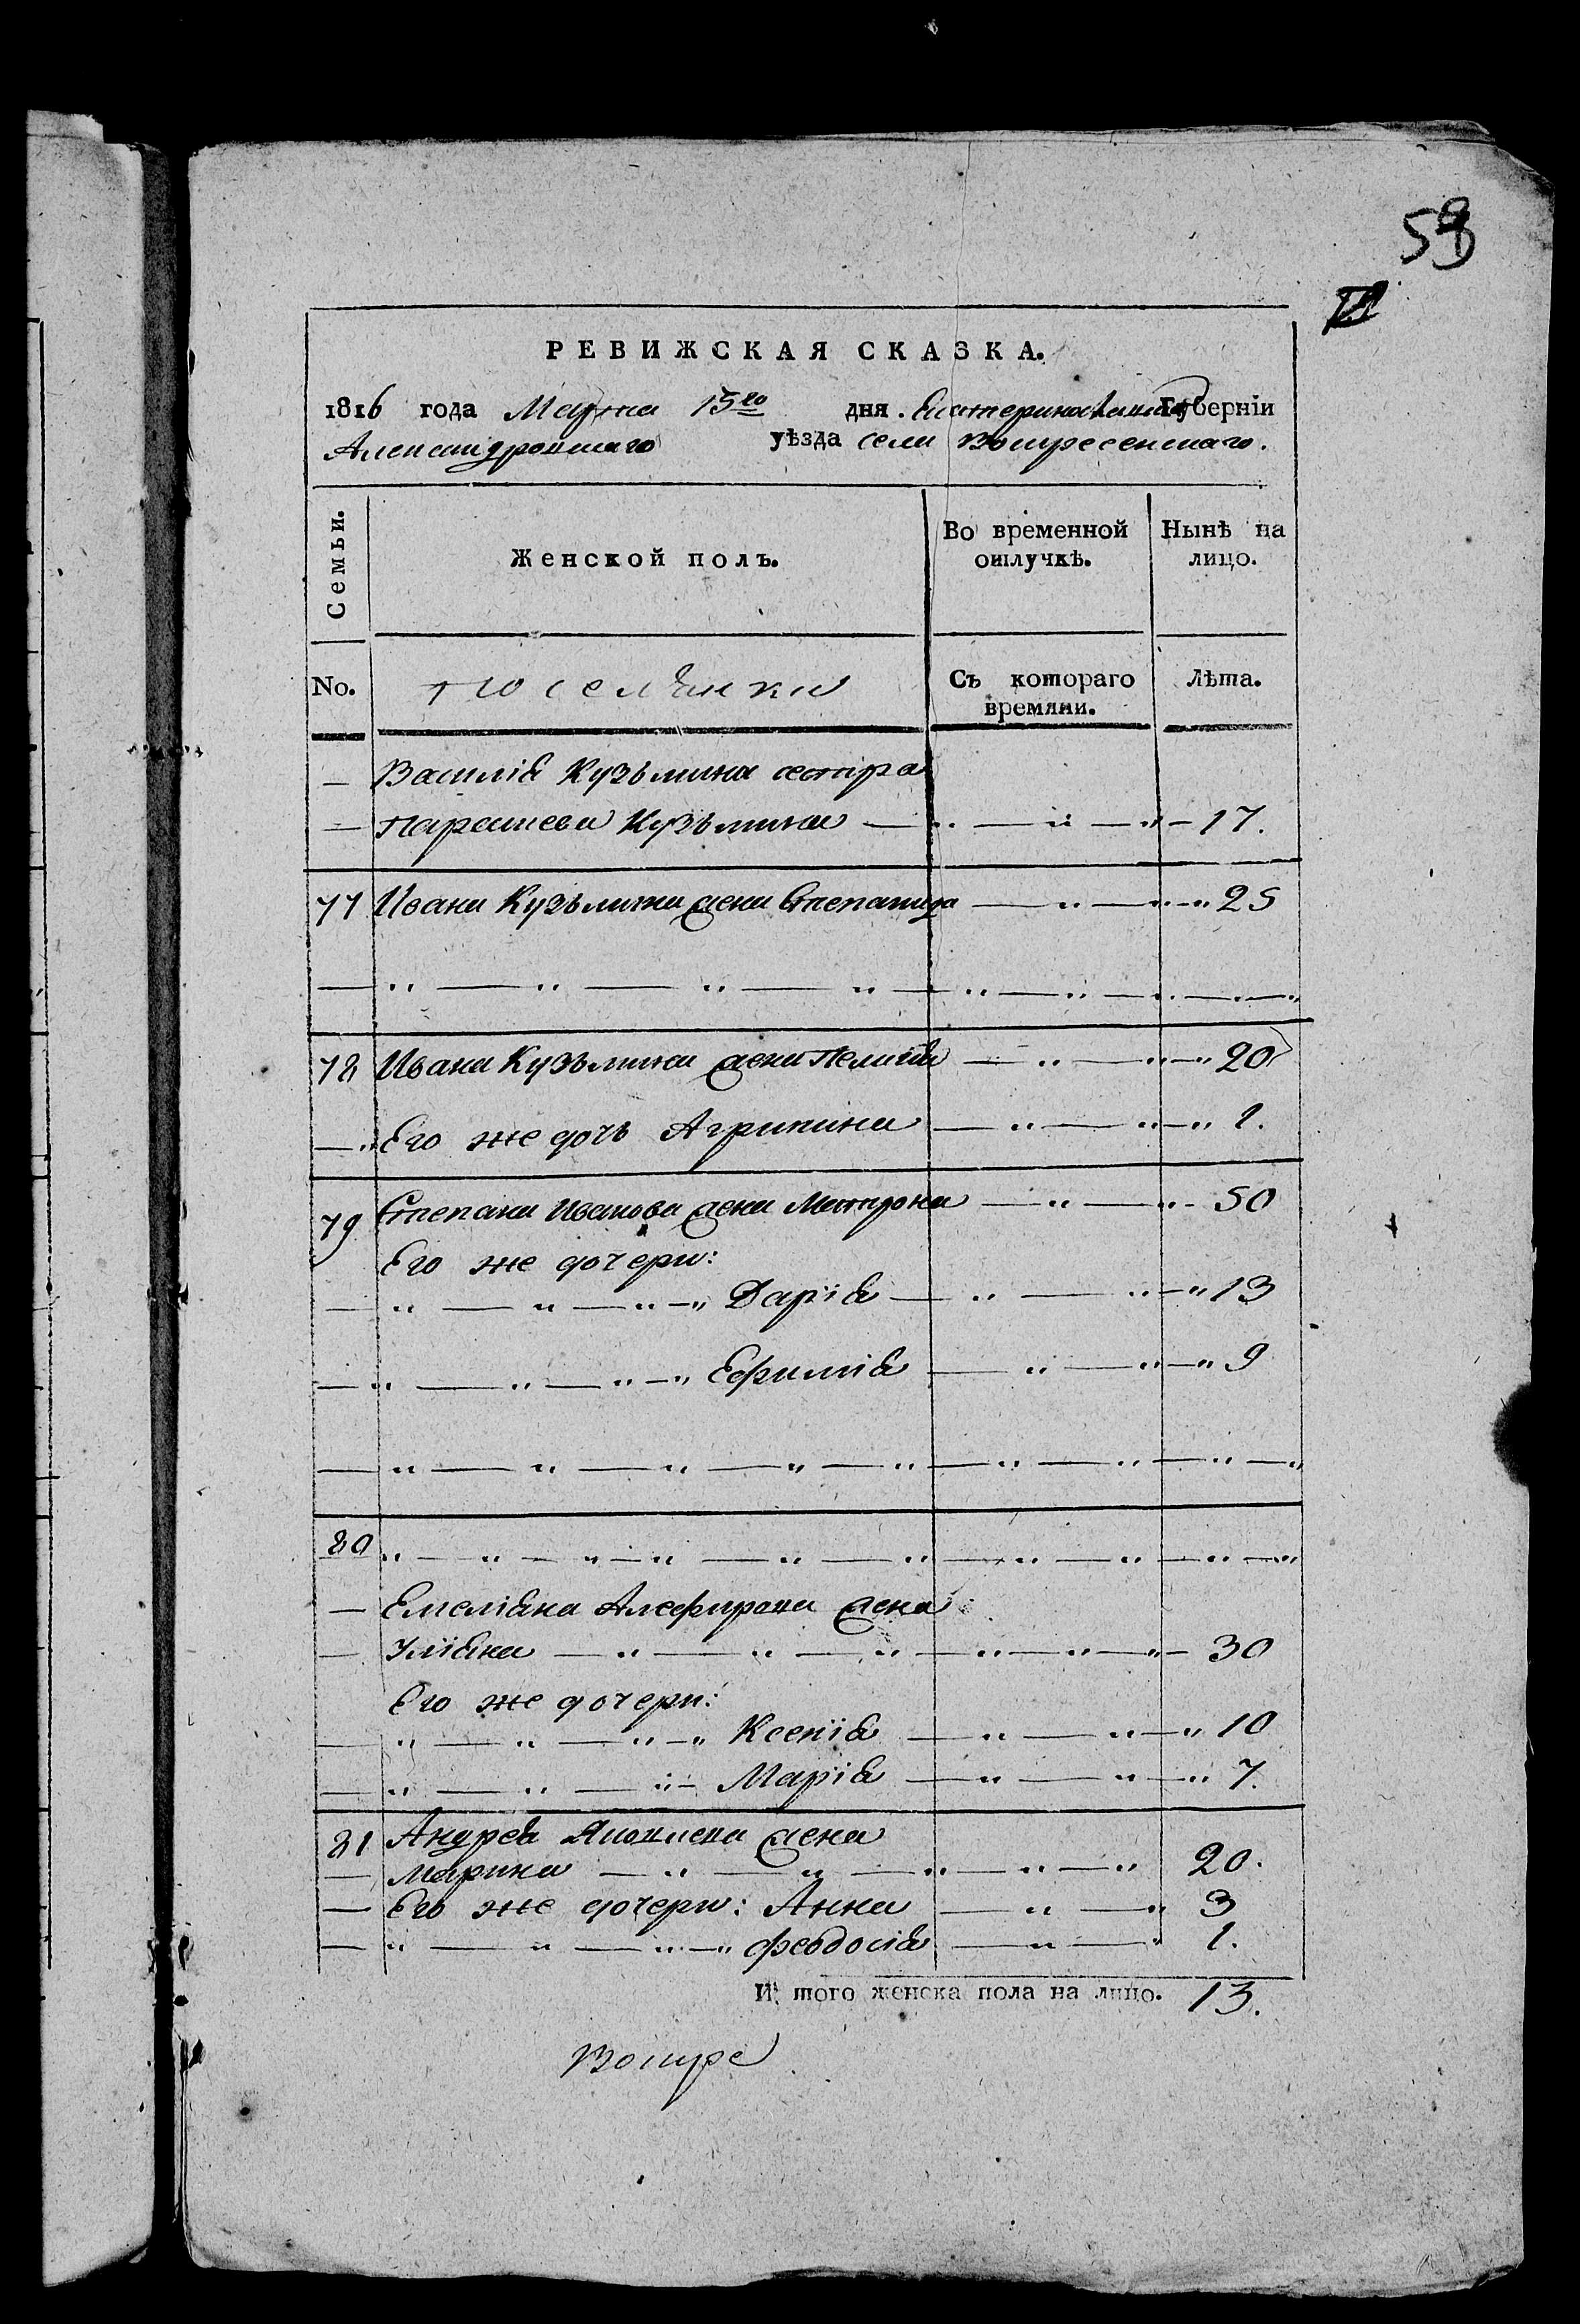 59
РЕВИЖСКАЯ СКАЗКА.
1816 года Марта 15го дня. Екатеринославской Губерніи
Александровскаго уѣзда села Воскресенскаго.
Семьи.
Женской полъ.
Во временной отлучкѣ.
Нынѣ на лицо.
No.
поселянки
Съ котораго времяни.
Лѣта.
— Василія Кузьмина сестра
— Параскева Кузьмина — „ — „ — „ — 17.
77 Ивана Кузьмина жена Степанида — „ — „ — „ 25
— „ — „ — „ — „ — „ — „ — „ — „ — „
78 Ивана Кузьмина жена Пелагія — „ — „ — „ 20
— „ Его же дочь Агрипина — „ — „ — „ 1.
79 Степана Иванова жена Матрона — „ — „ - 50
Его же дочери:
— „ — „ — „ — „ Дарія — „ — „ — „ 13
— „ — „ — „ — „ Ефимія — „ — „ — „ 9
— „ — „ — „ — „ — „ — „ — „ — „ — „
80 „ — „ — „ — „ — „ — „ — „ — „ — „ — „
— Емеліяна жена
— Уліяна — „ — „ — „ — „ — „ — „ — 30
Его же дочери:
— „ — „ — „ — „ Ксенія — „ — „ — „ 10
— „ — „ — „ — Марія — „ — „ — „ 7.
81 Андрея жена
— Марина — „ — „ — „ — „ — „ 20.
— Его же дочери: Анна — „ — „ 3
— „ — „ — „ — „ Феодосія — „ — „ 1.
И того женска пола на лицо. 13.
Воскре